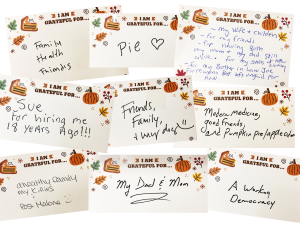 I AM
GRATEFUL FOR...
Family
Health
Friends
I AM
GRATEFUL FOR...
Pie
I AM
GRATEFUL FOR...
- my wife & children
- for my friends
- for having
I AM
GRATEFUL FOR...
Sue
for hiring me
18 years Ago!!!
I AM
GRATEFUL FOR...
Friends,
Family,
& my dog
I AM
GRATEFUL FOR...
Modern Medicine,
good friends,
and pumpkin pie/apple cake
I AM
GRATEFUL FOR...
my kitties
Post Malone
I AM
GRATEFUL FOR...
My Dad & Mom
I AM
GRATEFUL FOR...
A Working
Democracy